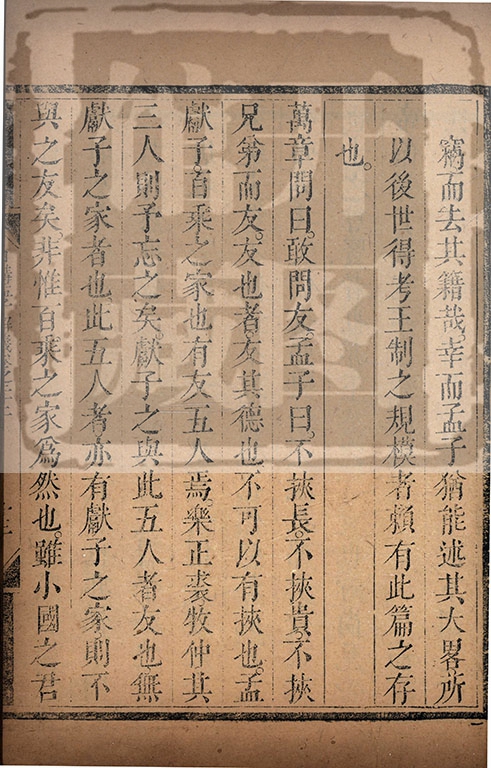 竊而去其籍哉。幸而孟子猶能述其大畧所
以後世得考王制之規模者賴有此篇之存
也。
萬章問曰。敢問友。孟子曰。不挾長。不挾貴。不挾
兄弟而友。友也者友其德也不可以有挾也。孟
獻子百乘之家也有友五人焉。樂正裘牧仲其
三人則予忘之矣。獻子之與此五人者友也無
獻子之家者也此五人者亦有獻子之家則不
與之友矣。非惟百乘之家爲然也。雖小國之君